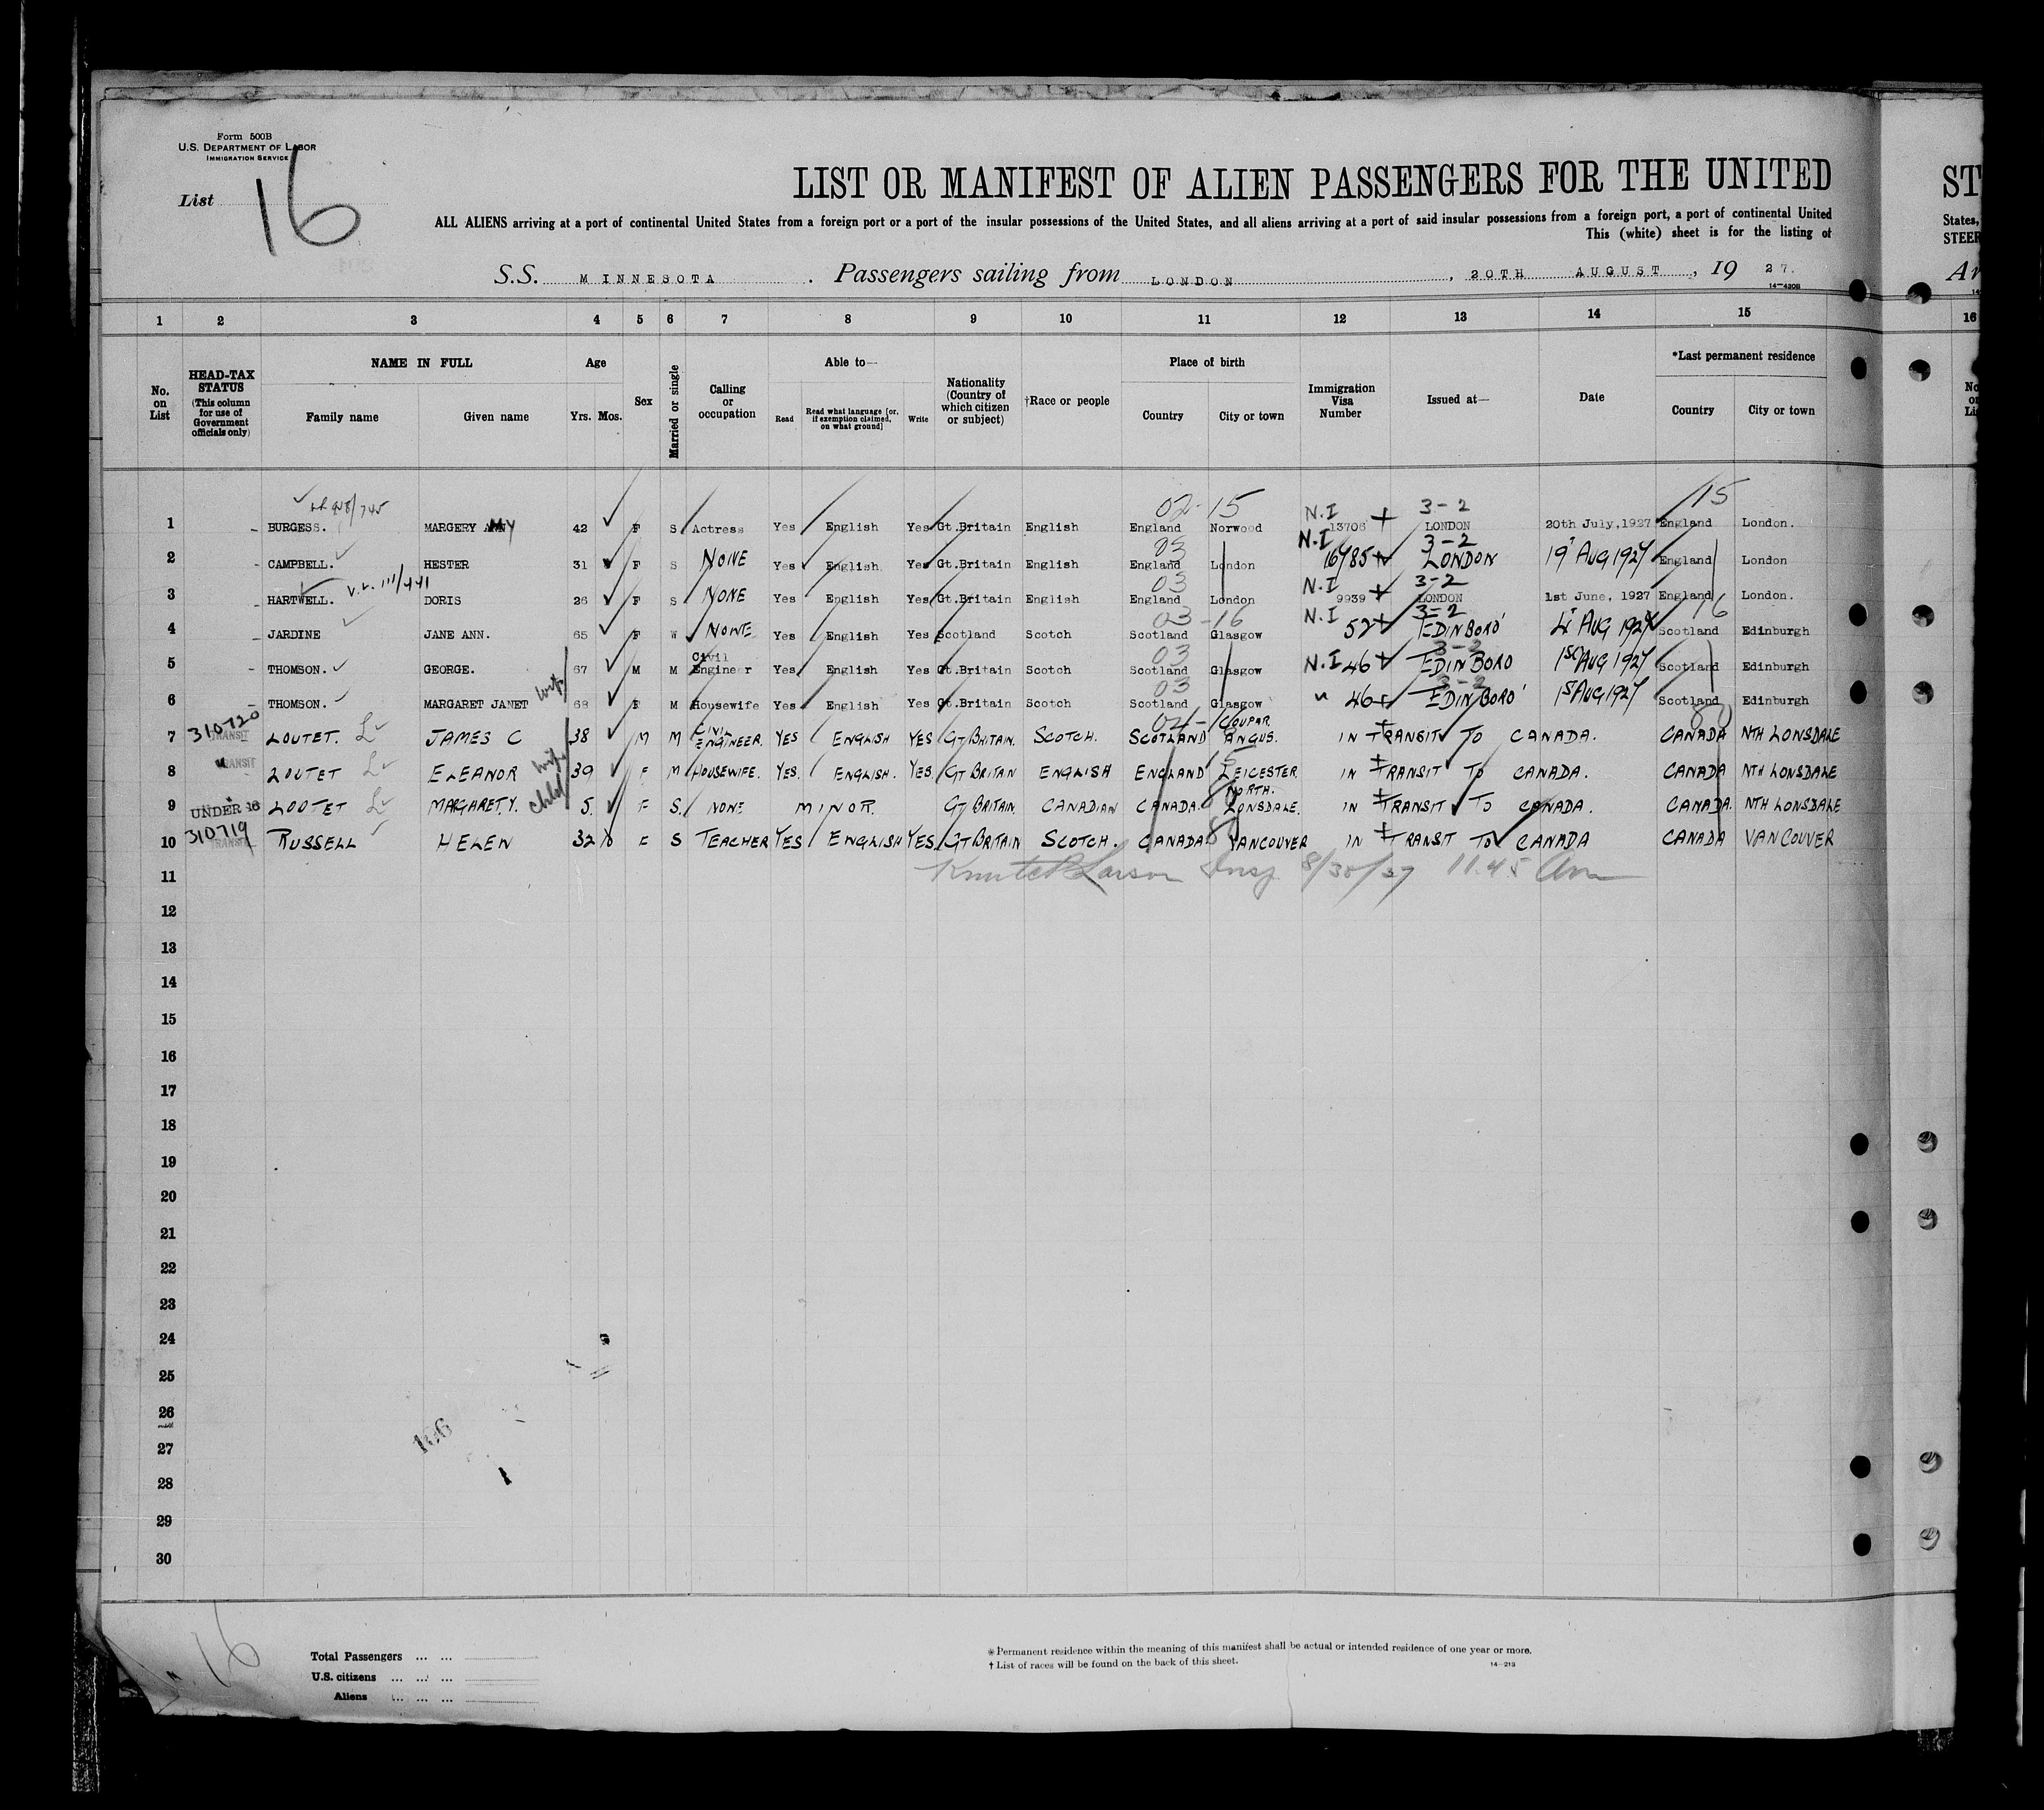 Form 500B
U.S. DEPARTMENT OF LABOR
IMMIGRATION SERVICE
List 16
LIST OR MANIFEST OF ALIEN PASSENGERS FOR THE UNITED
ST
ALL ALIENS arriving at a port of continental United States from a foreign port or a port of the insular possessions of the United States, and all aliens arriving at a port of said insular possessions from a foreign port, a port of continental United
States,
This (white) sheet is for the listing of
STEER
S.S. MINNESOTA. Passengers sailing from LONDON, 20TH AUGUST, 1927.
Ar
14-430B
1 2 3 4 5 6 7 8 9 10 11 12 13 14 15 16
No. on List
HEAD-TAX STATUS (This column for use of Government officials only)
NAME IN FULL
Family name Given name
Age
Yrs. Mos.
Sex
Married or single
Calling or occupation
Able to—
Read Read what language [or, if exemption claimed, on what ground] Write
Nationality (Country of which citizen or subject)
†Race or people
Place of birth
Country City or town
Immigration Visa Number
Issued at—
Date
*Last permanent residence
Country City or town
02-15 15
N.I 3-2
1 BURGESS. MARGERY AMY 42 F S Actress Yes English Yes Gt.Britain English England Norwood 13706 LONDON 20th July, 1927 England London.
03 N.I 3-2
2 CAMPBELL. HESTER 31 F S NONE Yes English Yes Gt.Britain English England London 16785 LONDON 19 AUG 1927 England London
V.L. 111/441 03 N.I 3-2
3 HARTWELL. DORIS 26 F S NONE Yes English Yes Gt.Britain English England London 9939 LONDON 1st June, 1927 England London.
03-16 N.I 3-2 16
4 JARDINE JANE ANN. 65 F W NONE Yes English Yes Scotland Scotch Scotland Glasgow 52 EDINBORO' 4 AUG 1927 Scotland Edinburgh
03 3-2
5 THOMSON. GEORGE. 67 M M Civil Engineer Yes English Yes Gt.Britain Scotch Scotland Glasgow N.I 46 EDINBORO 1st AUG 1927 Scotland Edinburgh
wife 03 3-2
6 THOMSON. MARGARET JANET 68 F M Housewife Yes English Yes Gt.Britain Scotch Scotland Glasgow " 46 EDINBORO' 1st AUG 1927 Scotland Edinburgh
310720 TRANSIT
7 LOUTET. JAMES C 38 M M CIVIL ENGINEER. YES ENGLISH YES GT BRITAIN. SCOTCH. SCOTLAND COUPAR ANGUS. IN TRANSIT TO CANADA. CANADA NTH LONSDALE
" TRANSIT wife
8 LOUTET ELEANOR 39 F M HOUSEWIFE. YES. ENGLISH. YES GT BRITAN ENGLISH ENGLAND LEICESTER IN TRANSIT TO CANADA. CANADA NTH LONSDALE
UNDER 16 child
9 LOUTET MARGARET.Y. 5. F S. NONE MINOR. GT BRITAIN. CANADIAN CANADA. NORTH. LONSDALE. IN TRANSIT TO CANADA. CANADA. NTH LONSDALE
310719 TRANSIT
10 RUSSELL HELEN 32 F S TEACHER YES ENGLISH YES GT BRITAIN SCOTCH. CANADA VANCOUVER IN TRANSIT TO CANADA CANADA VANCOUVER
11 Larson Insp 8/30/27 11.45 Am
12
13
14
15
16
17
18
19
20
21
22
23
24
25
26
27
28
29
30
16
Total Passengers ... ...
U.S. citizens ... ... ...
Aliens ... ... ...
* Permanent residence within the meaning of this manifest shall be actual or intended residence of one year or more.
† List of races will be found on the back of this sheet.
14-213